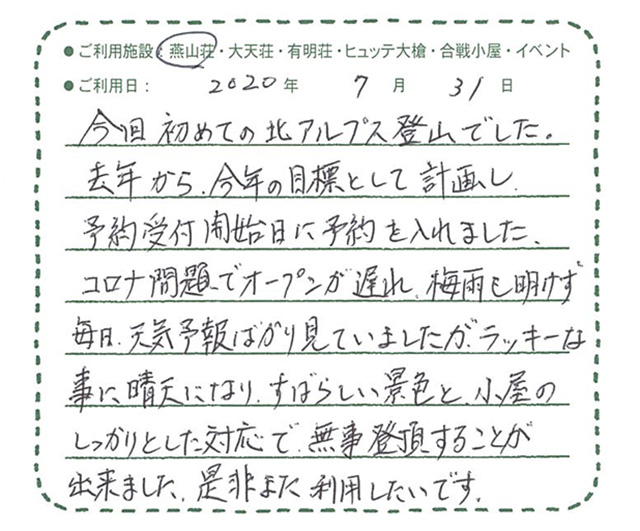 ●ご利用施設:燕山荘・大天荘・有明荘・ヒュッテ大槍・合戦小屋・イベント
●ご利用日: 2020年 7月 31日
今回初めての北アルプス登山でした。
去年から、今年の目標として計画し、
予約受付開始日に予約を入れました、
コロナ問題でオープンが遅れ、梅雨も明けず
毎日、天気予報ばかり見ていましたが、ラッキーな
事に晴天になり、すばらしい景色と、小屋の
しっかりとした対応で、無事登頂することが
出来ました、是非また利用したいです。